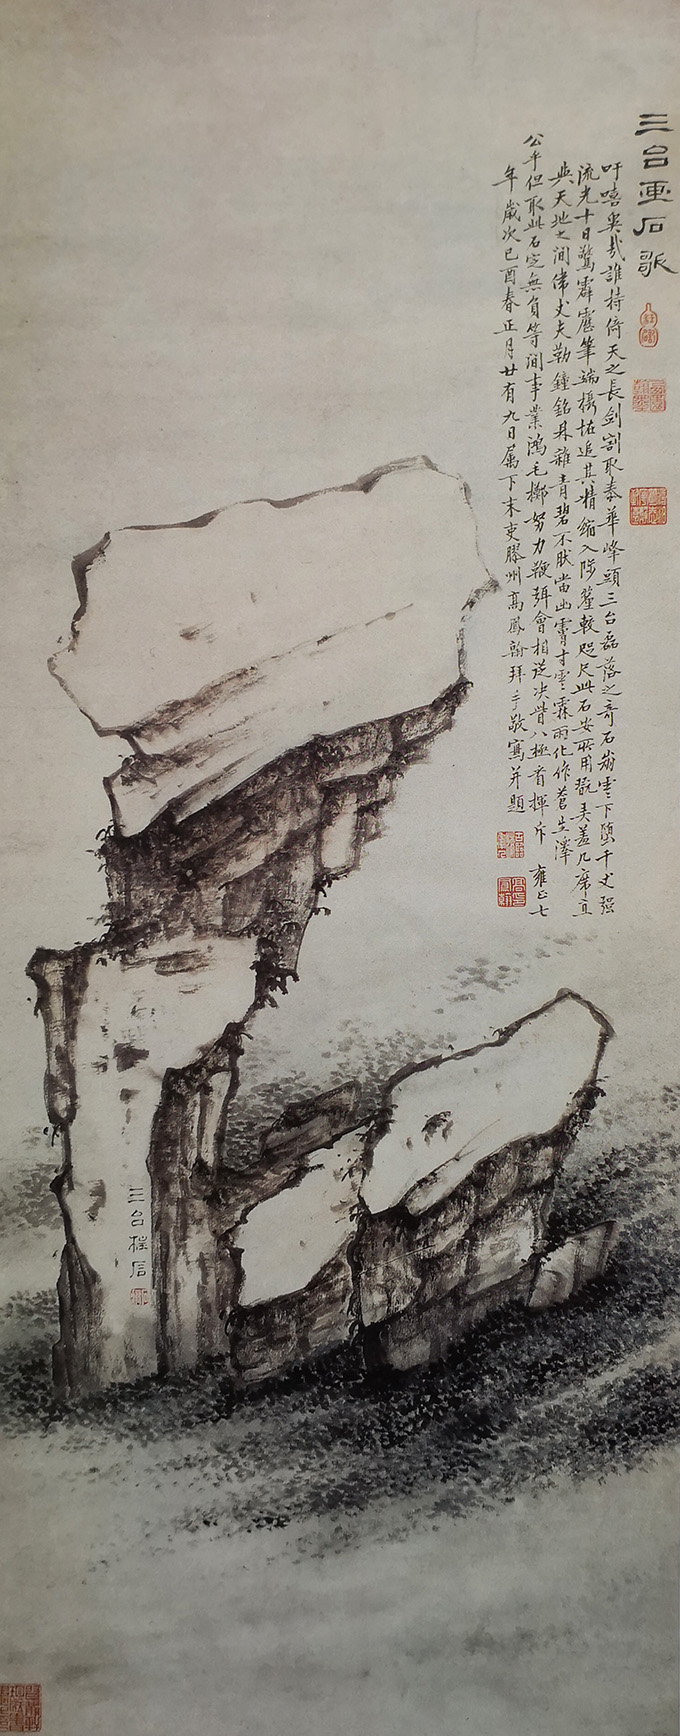 三台画石歌
吁嘻奥哉誰持倚天之長剑割取泰華峰頭三台磊落之奇石崩雲下墮千丈强
流光十日驚霹靂筆端搆怪追其精縮入陟釐較咫尺此石安所用觀美盖几席直
與天地之間偉丈夫勒鐘銘鼎雜青碧不肰當出膚寸雲霖雨化作蒼生澤
公乎但取此石定無負等閒事業鴻毛擲努力鞭弭會相逆決眥八極看揮斥 雍正七
年歲次己酉春正月廿有九日属下末吏膠州高鳳翰拜手敬寫并題
三台柱石